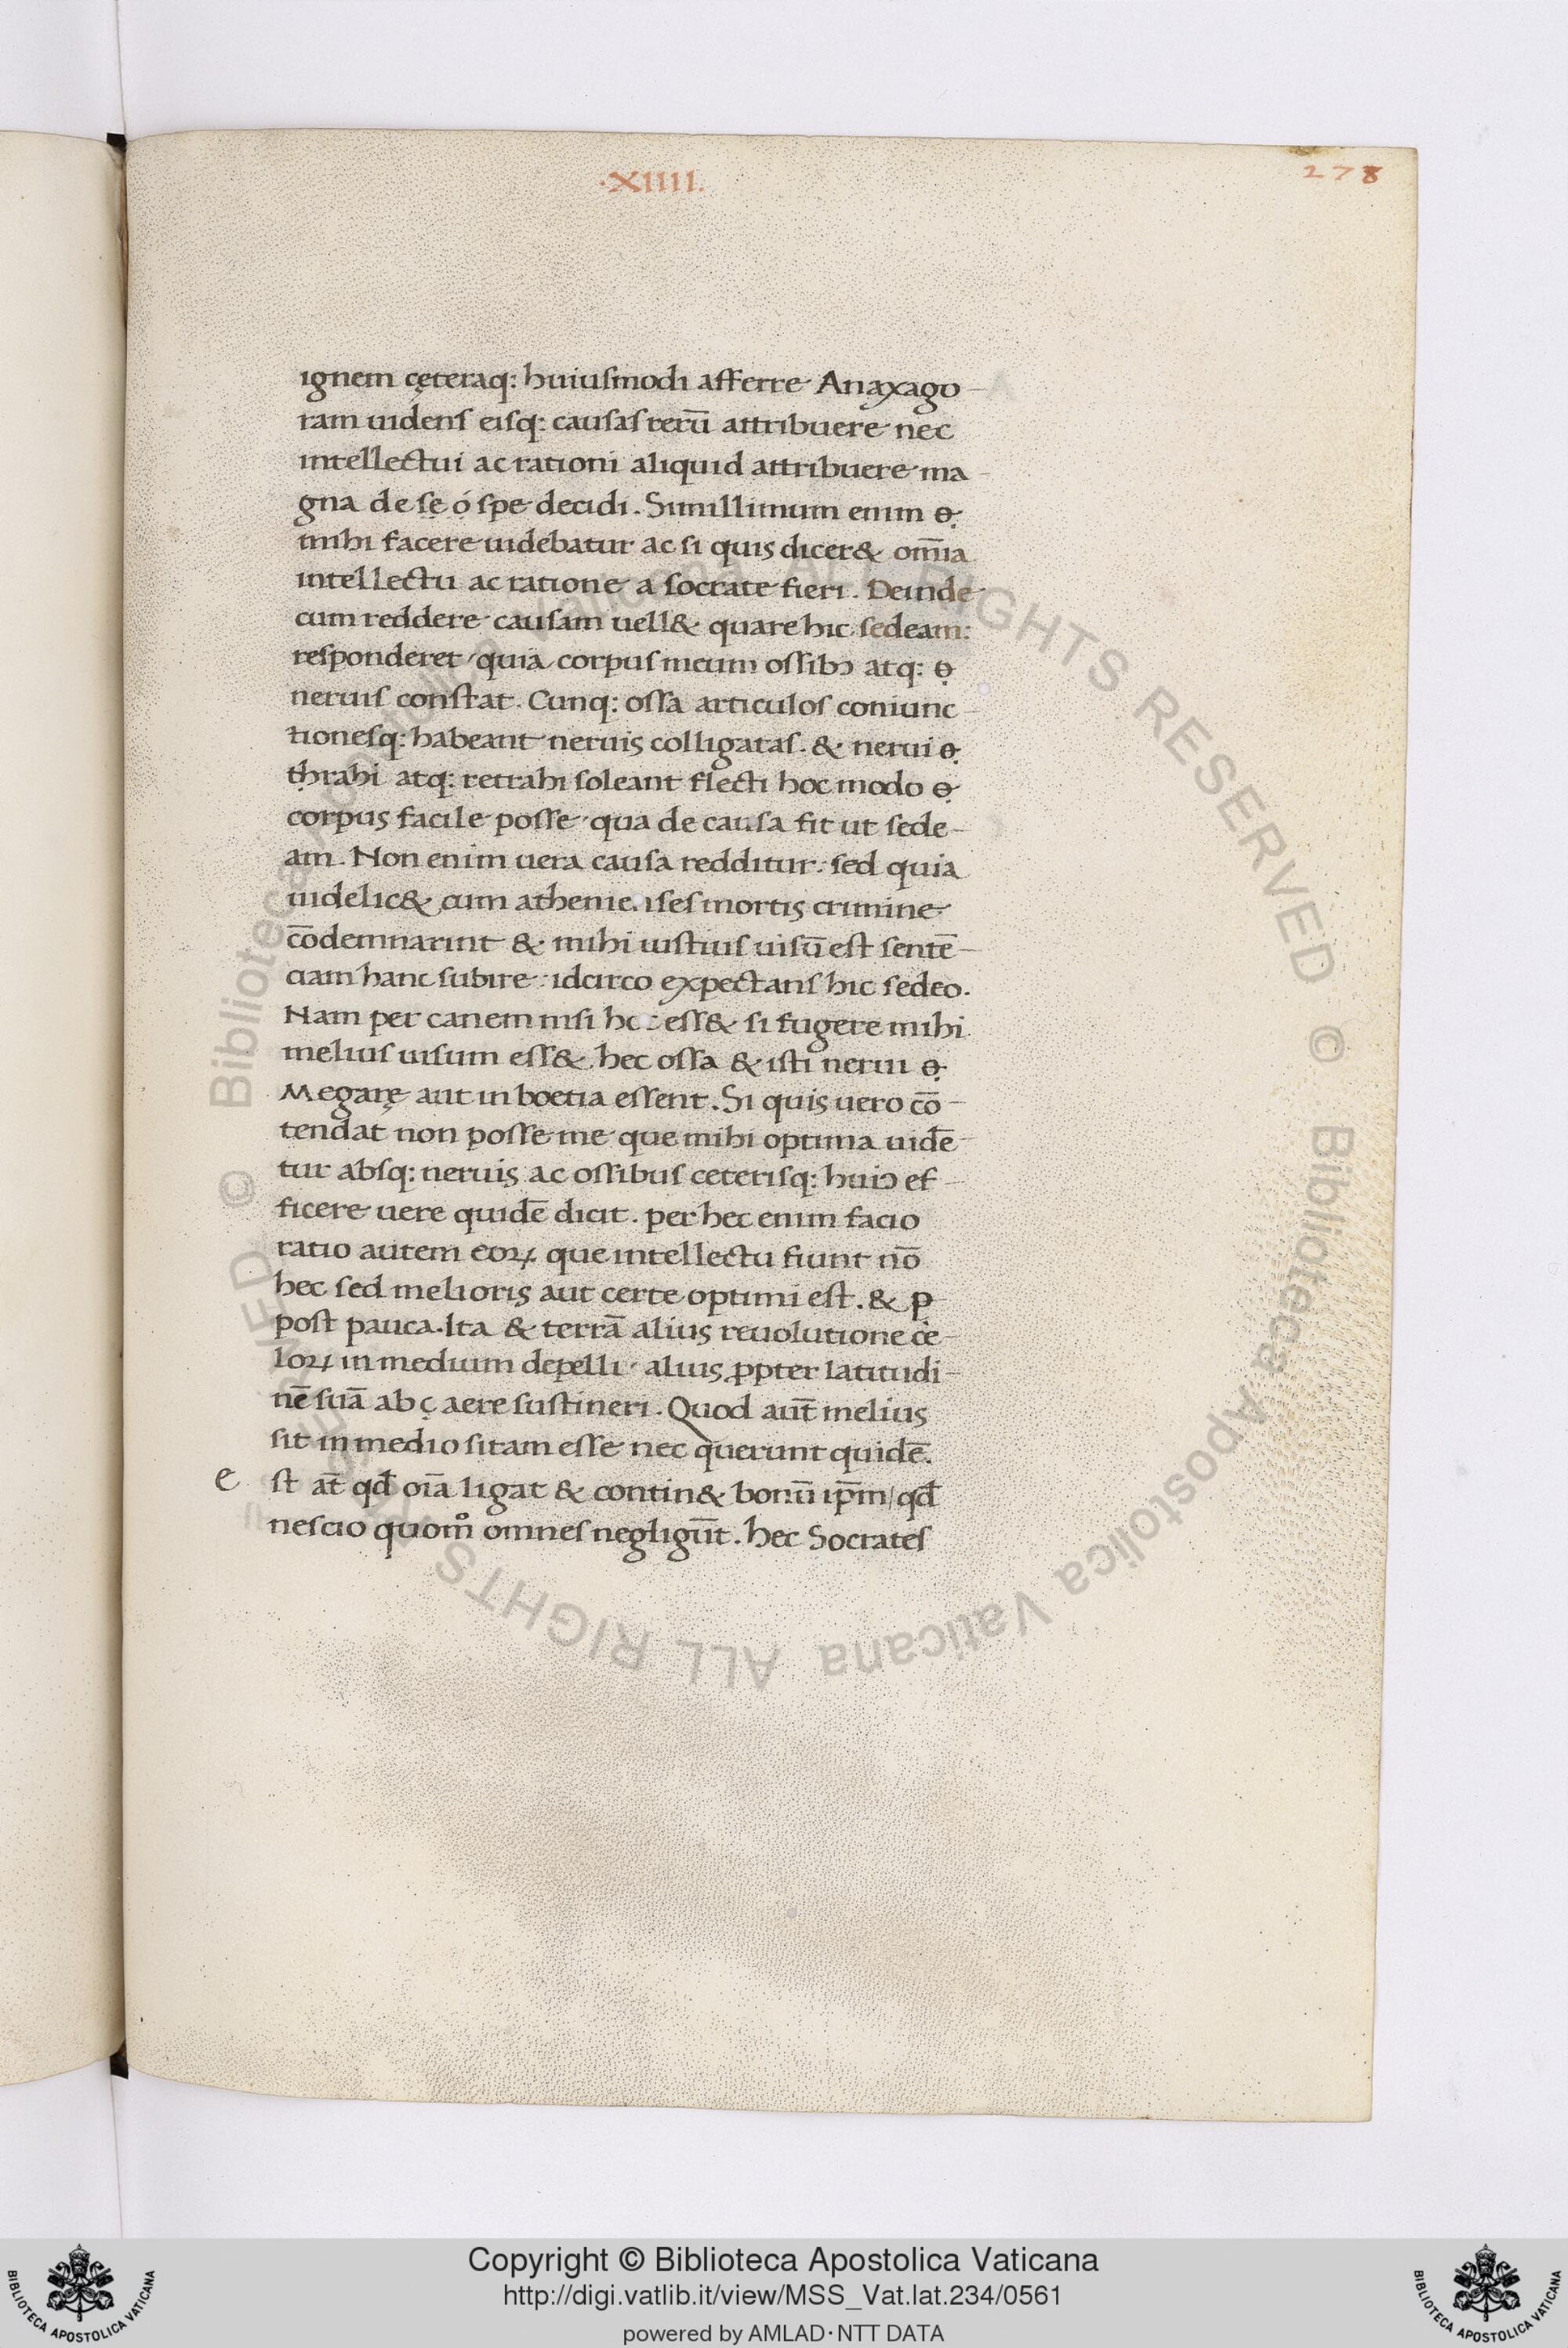 ·XIIII.
278
ignem cęteraq: huiusmodi afferre Anaxago-
ram uidens eisq: causas rerū attribuere nec
intellectui ac rationi aliquid attribuere ma-
gna de sẹ ó spe decidi. Simillimum enim ẹ
mihi facere uidebatur ac si quis dicer& om̄ia
intellectu ac ratione a socrate fieri. Deinde
cum reddere causam uell& quare hic sedeam:
responderet quia corpus meum ossibꝯ atq: ẹ
neruis constat. Cunq: ossa articulos coniunc-
tionesq: habeant neruis colligatas. & nerui ẹ
tḥrahi atq: retrahi soleant flecti hoc modo ẹ
corpus facile posse qua de causa fit ut sede-
am. Non enim uera causa redditur. sed quia
uidelic& cum athenienses mortis crimine
cōdemnarint & mihi iustius uisū est sentē-
ciam hanc subire idcirco expectans hic sedeo.
Nam per canem nisi hoc ess& si fugere mihi
melius uisum ess& hec ossa & isti nerui ẹ
Megarę aut in boetia essent. Si quis uero cō-
tendat non posse me que mihi optima uidē-
tur absq: neruis ac ossibus ceterisq: huiꝯ ef-
ficere uere quidē dicit. per hec enim facio
ratio autem eoꝝ que intellectu fiunt nō
hec sed melioris aut certe optimi est. & p
post pauca. Ita & terrā alius reuolutione ce-
loꝝ in medium depelli alius ꝓpter latitudi-
nē suā ab ç aere sustineri. Quod aūt melius
sit in medio sitam esse nec querunt quidē.
e st at̄ qđ oīa ligat & contin& bonū ip̄m/qđ
nescio quomo omnes negligūt. hec Socrates
Copyright © Biblioteca Apostolica Vaticana
http://digi.vatlib.it/view/MSS_Vat.lat.234/0561
powered by AMLAD·NTT DATA